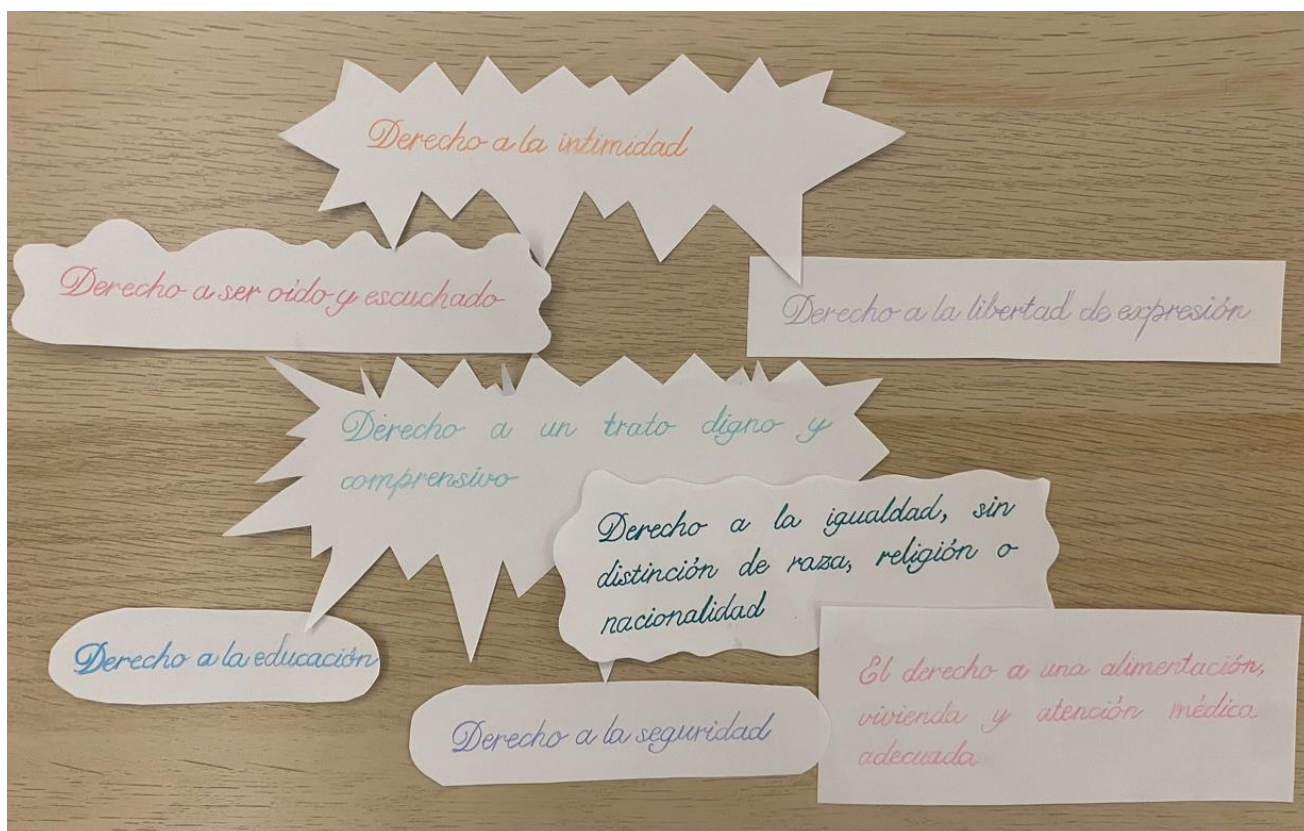 Derecho a la intimidad
Derecho a ser oído y escuchado
Derecho a la libertad de expresión
Derecho a un trato digno y
comprensivo
Derecho a la igualdad, sin
distinción de raza, religión o
nacionalidad
Derecho a la educación
El derecho a una alimentación,
vivienda y atención médica
adecuada
Derecho a la seguridad